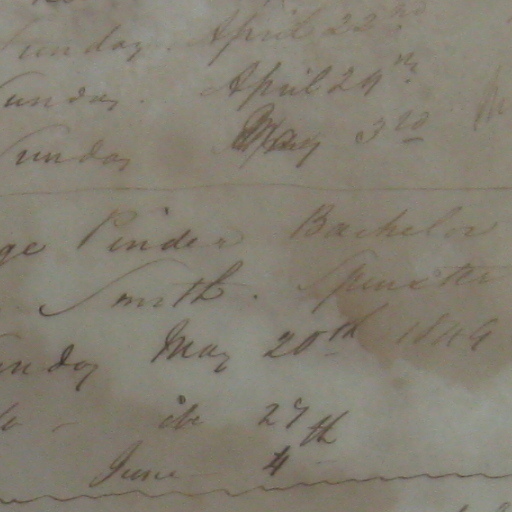 Sunday. April 22nd
Sunday. April 29th
Sunday May 3rd
ge Pinder Bachelor
Smith. Spinster
nday May 20th 1849
do - do 27th
June 4